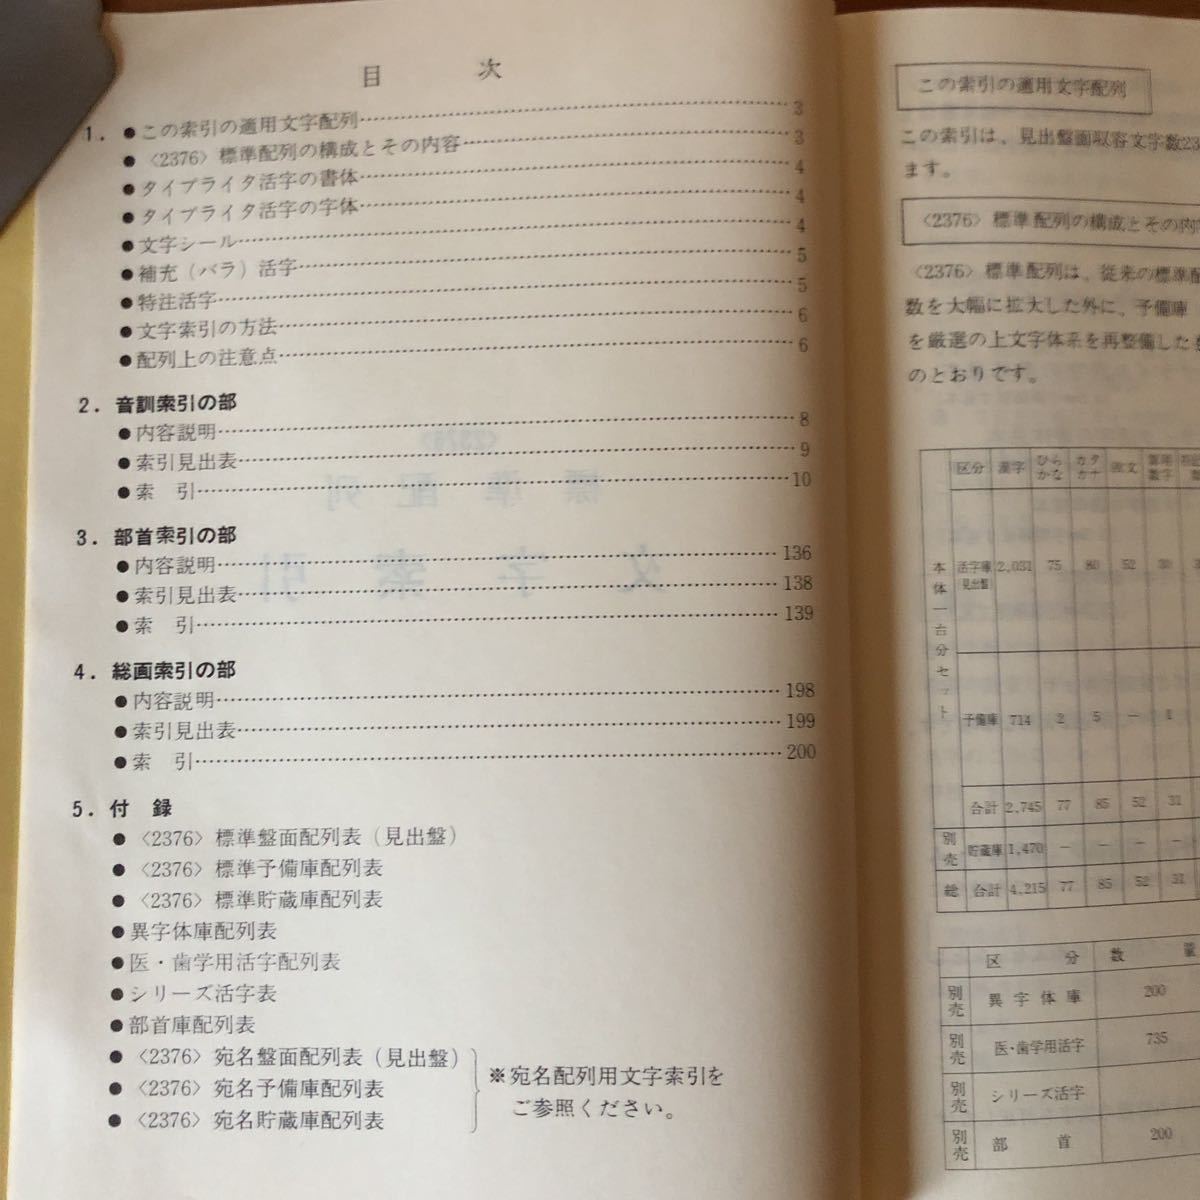 目　次
1．●この索引の適用文字配列……3
●〈2376〉標準配列の構成とその内容……3
●タイプライタ活字の書体……4
●タイプライタ活字の字体……4
●文字シール……4
●補充（バラ）活字……5
●特注活字……5
●文字索引の方法……6
●配列上の注意点……6
2．音訓索引の部
●内容説明……8
●索引見出表……9
●索　引……10
3．部首索引の部
●内容説明……136
●索引見出表……138
●索　引……139
4．総画索引の部
●内容説明……198
●索引見出表……199
●索　引……200
5．付　録
●〈2376〉標準盤面配列表（見出盤）
●〈2376〉標準予備庫配列表
●〈2376〉標準貯蔵庫配列表
●異字体庫配列表
●医・歯学用活字配列表
●シリーズ活字表
●部首庫配列表
●〈2376〉宛名盤面配列表（見出盤）
●〈2376〉宛名予備庫配列表
●〈2376〉宛名貯蔵庫配列表
※宛名配列用文字索引を
ご参照ください。
この索引の適用文字配列
この索引は、見出盤面収容文字数23
ます。
〈2376〉標準配列の構成とその内
〈2376〉標準配列は、従来の標準配
数を大幅に拡大した外に、予備庫
を厳選の上文字体系を再整備した
のとおりです。
区分 漢字 ひらかな カタカナ 欧文
本体一台分セット
活字庫見出盤 2,031 75 80 52 30
予備庫 714 2 5 － 1
合計 2,745 77 85 52 31
別売 貯蔵庫 1,470 － － － －
総 合計 4,215 77 85 52 31
区　分 数　量
別売 異字体庫 200
別売 医・歯学用活字 735
別売 シリーズ活字
別売 部　首 200